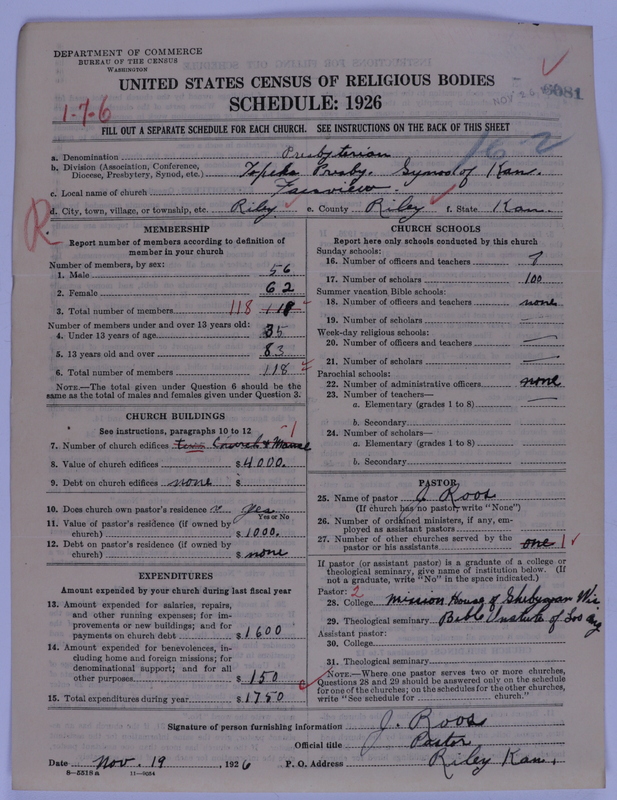 DEPARTMENT OF COMMERCE
BUREAU OF THE CENSUS
WASHINGTON
UNITED STATES CENSUS OF RELIGIOUS BODIES
SCHEDULE: 1926
1-7-6
NOV 26
6081
FILL OUT A SEPARATE SCHEDULE FOR EACH CHURCH. SEE INSTRUCTIONS ON THE BACK OF THIS SHEET
16-2
a. Denomination Presbyterian
b. Division (Association, Conference, Diocese, Presbytery, Synod, etc.) Topeka Presby. Synod of Kan.
c. Local name of church Fairview.
d. City, town, village, or township, etc. Riley e. County Riley f. State Kan.
R
MEMBERSHIP
Report number of members according to definition of member in your church
Number of members, by sex:
1. Male 56
2. Female 62
3. Total number of members 118 118
Number of members under and over 13 years old:
4. Under 13 years of age 35
5. 13 years old and over 83
6. Total number of members 118
NOTE.—The total given under Question 6 should be the same as the total of males and females given under Question 3.
CHURCH BUILDINGS
See instructions, paragraphs 10 to 12
7. Number of church edifices two Church & Manse 1
8. Value of church edifices $ 4000.
9. Debt on church edifices none $
10. Does church own pastor's residence? yes
Yes or No
11. Value of pastor's residence (if owned by church) $ 1000.
12. Debt on pastor's residence (if owned by church) $ none
EXPENDITURES
Amount expended by your church during last fiscal year
13. Amount expended for salaries, repairs, and other running expenses; for improvements or new buildings; and for payments on church debt $ 1600
14. Amount expended for benevolences, including home and foreign missions; for denominational support; and for all other purposes $ 150
15. Total expenditures during year $ 1750
CHURCH SCHOOLS
Report here only schools conducted by this church
Sunday schools:
16. Number of officers and teachers 8
17. Number of scholars 100
Summer vacation Bible schools:
18. Number of officers and teachers none
19. Number of scholars
Week-day religious schools:
20. Number of officers and teachers
21. Number of scholars
Parochial schools:
22. Number of administrative officers none
23. Number of teachers—
a. Elementary (grades 1 to 8)
b. Secondary
24. Number of scholars—
a. Elementary (grades 1 to 8)
b. Secondary
PASTOR
25. Name of pastor J. Roos
(If church has no pastor, write "None")
26. Number of ordained ministers, if any, employed as assistant pastors
27. Number of other churches served by the pastor or his assistants one 1
If pastor (or assistant pastor) is a graduate of a college or theological seminary, give name of institution below. (If not a graduate, write "No" in the space indicated.)
Pastor: 2
28. College Mission House of Sheboygan Wis
29. Theological seminary Bible Institute of Los Ang
Assistant pastor:
30. College
31. Theological seminary
NOTE.—Where one pastor serves two or more churches, Questions 28 and 29 should be answered only on the schedule for one of the churches; on the schedules for the other churches, write "See schedule for church."
Signature of person furnishing information J. Roos
Official title Pastor
Date Nov. 19, 1926 P. O. Address Riley Kan.
8-5518 a 11-9054